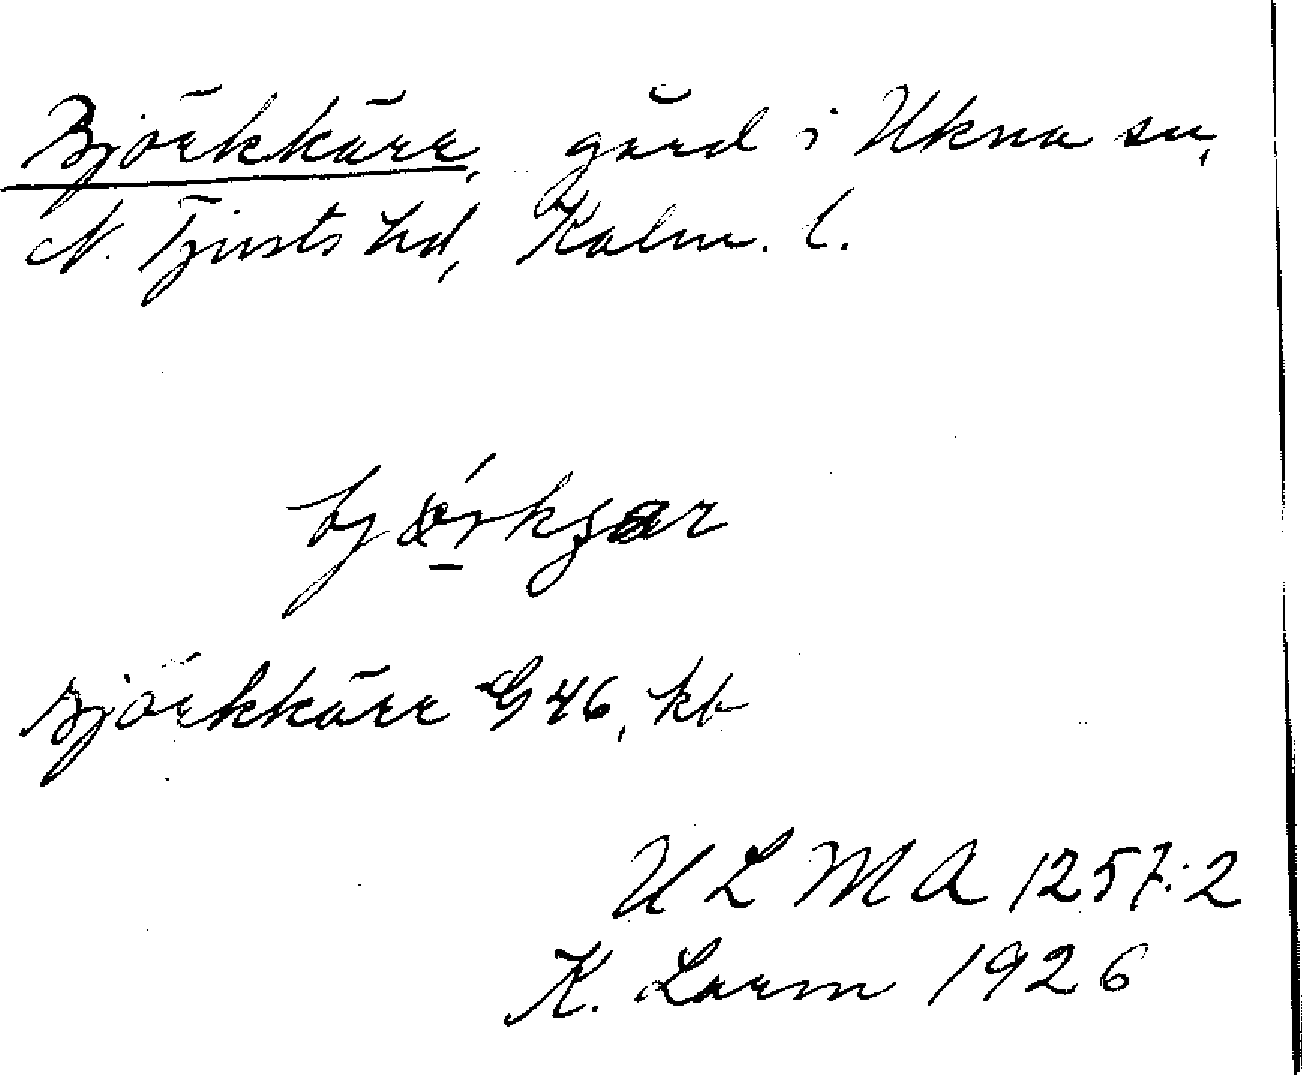 Björkkärr, gård i Ukna sn,
N. Tjusts hd, Kalm. l.
Björkkärr G 46, kb
ULMA 1257:2
K. Larm 1926